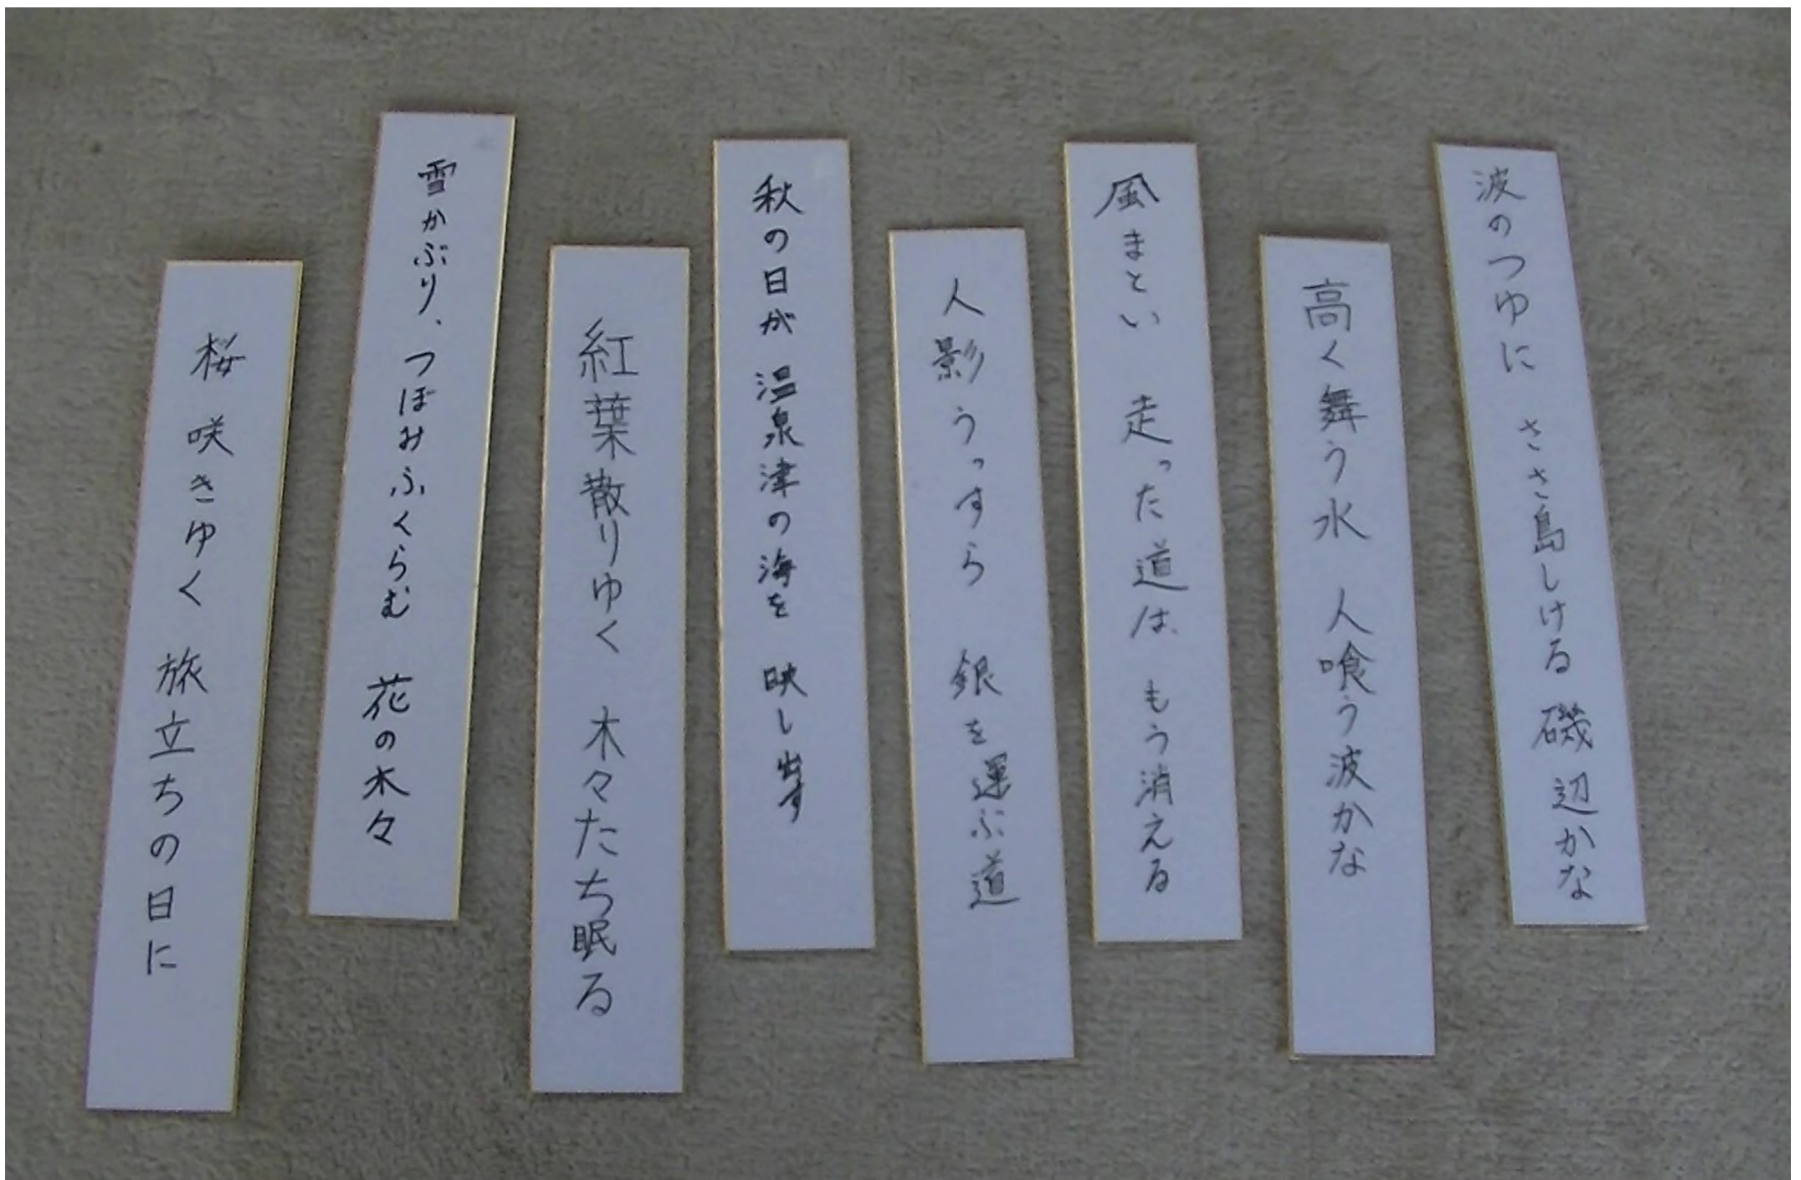 波のつゆに さざ島しける 磯辺かな
高く舞う水 人喰う波かな
風まとい 走った道は、もう消える
人影うっすら 銀を運ぶ道
秋の日が 温泉津の海を 映し出す
紅葉散りゆく 木々たち眠る
雪かぶり、つぼみふくらむ 花の木々
桜 咲きゆく 旅立ちの日に